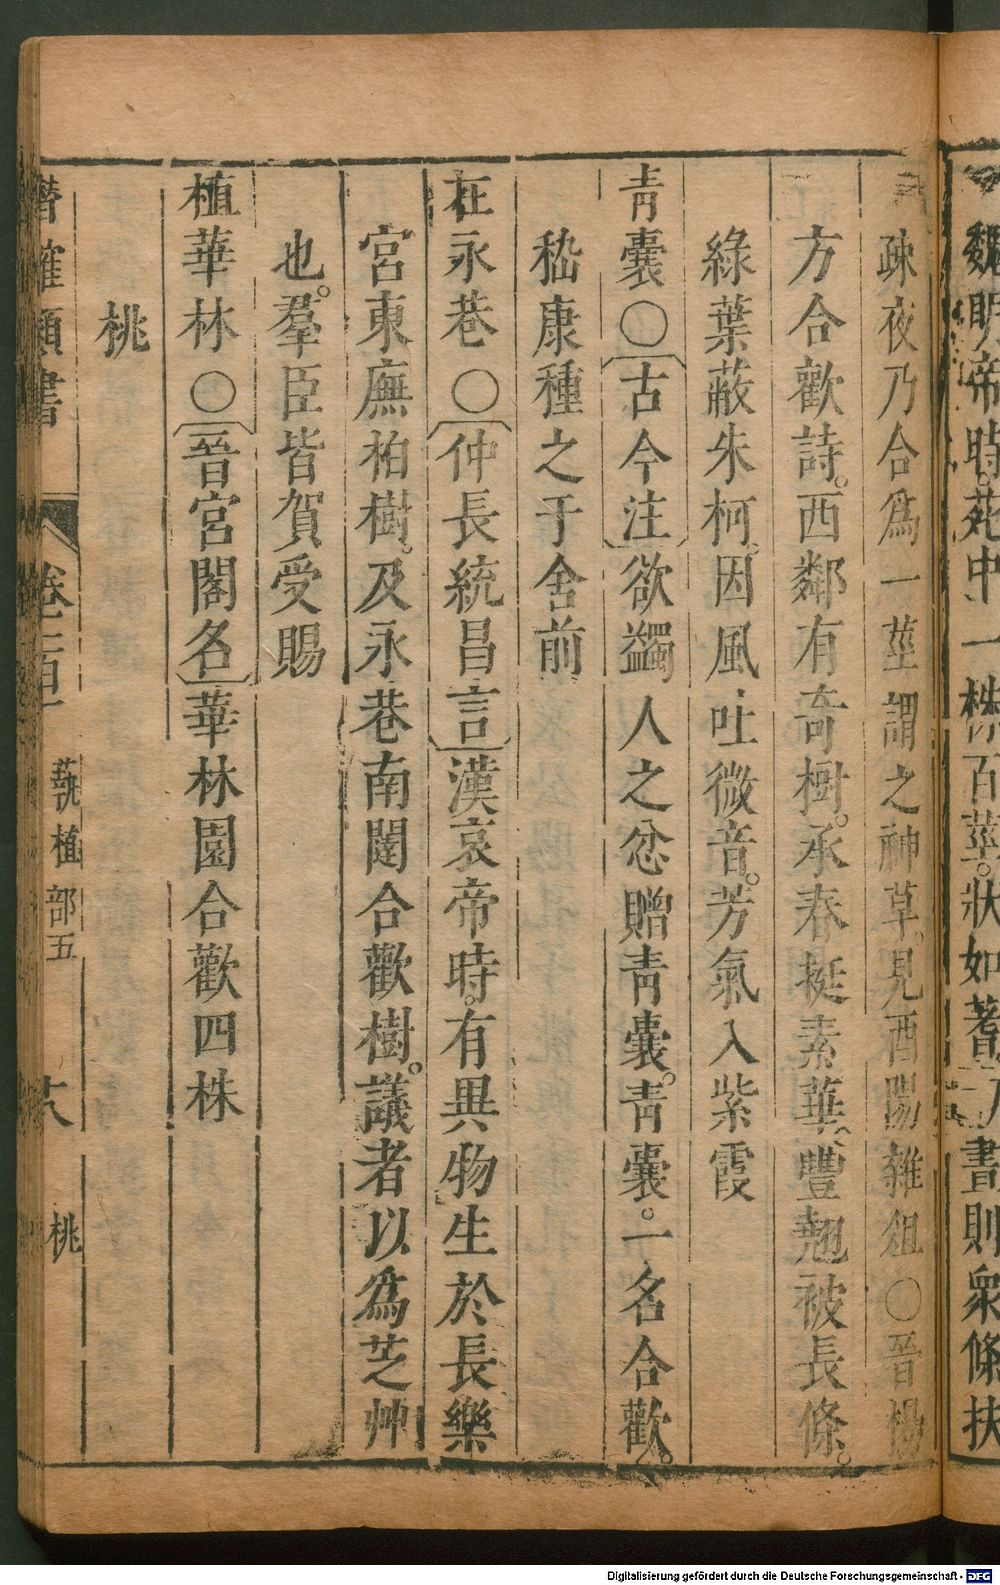 魏明帝時。苑中一株百莖。狀如蓍一刀晝則衆條扶
疎夜乃合爲一莖謂之神草。見酉陽雜俎○晉楊
方合歡詩。西鄰有奇樹。承春挺素華。豐翹被長條。
綠葉蔽朱柯。因風吐微音。芳氣入紫霞
青囊○〔古今注〕欲蠲人之忿贈青囊。青囊。一名合歡。
嵇康種之于舍前
在永巷○〔仲長統昌言〕漢哀帝時。有異物生於長樂
宮東廡柏樹。及永巷南闥合歡樹。議者以爲芝艸
也。羣臣皆賀受賜
植華林○〔晉宮閣名〕華林園合歡四株
桃
潛確類書
卷一百
蓺植部五
桃
Digitalisierung gefördert durch die Deutsche Forschungsgemeinschaft - DFG